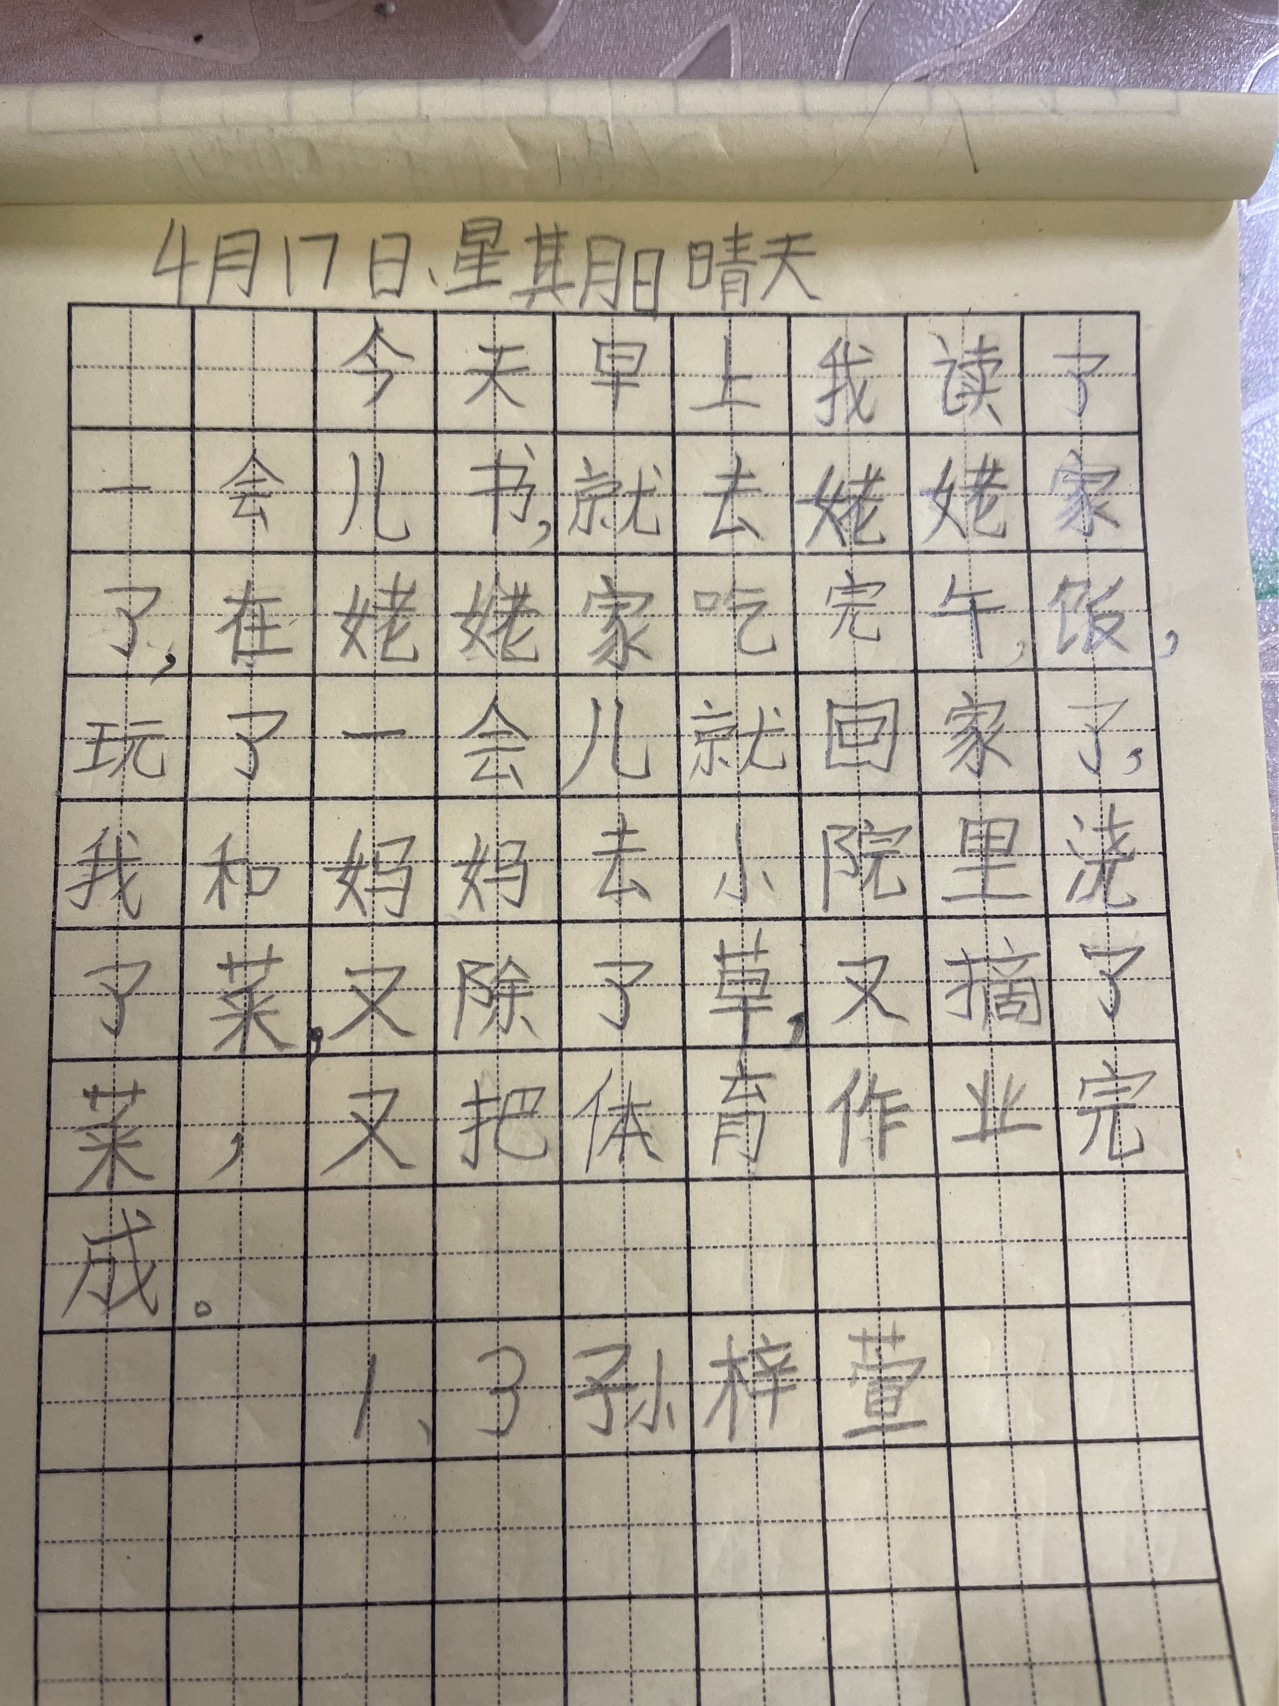 4月17日、星期日 晴天
今天早上我读了
一会儿书,就去姥姥家
了,在姥姥家吃完午饭,
玩了一会儿就回家了,
我和妈妈去小院里浇
了菜,又除了草,又摘了
菜,又把体育作业完
成。
1、3孙梓萱